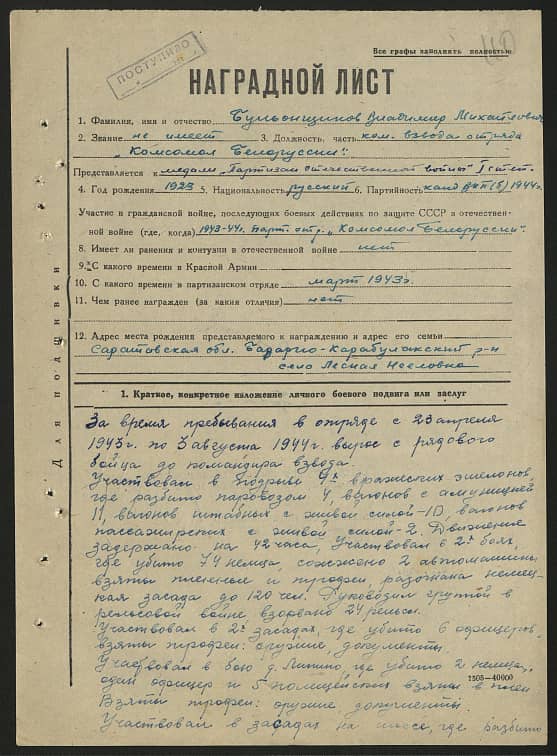 ПОСТУПИЛО
Все графы заполнять полностью
НАГРАДНОЙ ЛИСТ
1. Фамилия, имя и отчество Бульонщиков Владимир Михайлович
2. Звание не имеет 3. Должность, часть ком. взвода отряда
"Комсомол Белоруссии".
Представляется к медали "Партизан отечественной войны" I степ.
4. Год рождения 1923 5. Национальность русский 6. Партийность канд ВКП(б) 1944г.
Участие в гражданской войне, последующих боевых действиях по защите СССР и отечествен-
ной войне (где, когда) 1943-44г. Парт. отр. "Комсомол Белоруссии".
8. Имеет ли ранения и контузии в отечественной войне нет
9. С какого времени в Красной Армии
10. С какого времени в партизанском отряде март 1943г.
11. Чем ранее награжден (за какия отличия) нет
12. Адрес места рождения представляемого к награждению и адрес его семьи
Саратовская обл. Базарно-Карабулакский р-н
село Лесная Неёловка
Для подшивки
1. Краткое, конкретное изложение личного боевого подвига или заслуг
За время пребывания в отряде с 23 апреля
1943г. по 3 августа 1944г. вырос с рядового
бойца до командира взвода.
Участвовал в подрыве вражеских эшелонов
где разбито паровозов 4, вагонов с амуницией
11, вагонов штабных с живой силой-10, вагонов
пассажирских с живой силой-2. Движение
задержано на 42 часа, Участвовал в 2х боях,
где убито 74 немца, сожжено 2 автомашины
взяты пленные и трофеи, разогнана немец-
кая засада до 120 чел. Руководил группой в
рельсовой войне взорвано 24 рельсы.
Участвовал в 2х засадах, где убито 6 офицеров,
взяты трофеи: оружие, документы.
Участвовал в бою д. Липино, где убито 2 немца,
один офицер и 5 полицейских взяты в плен
Взяты трофеи: оружие, документы.
1505—40000
Участвовал в засадах на шоссе, где разбито